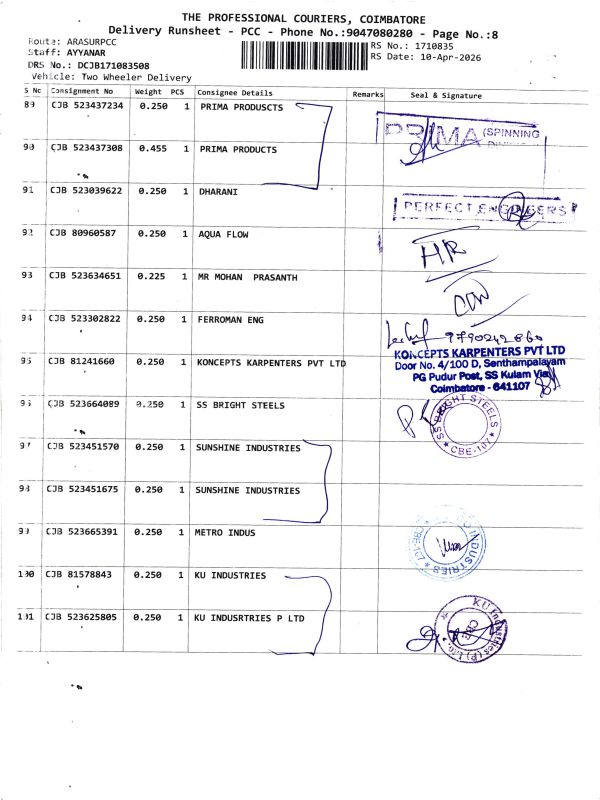 THE PROFESSIONAL COURIERS, COIMBATORE
Delivery Runsheet - PCC - Phone No.:9047080280 - Page No.:8
Route: ARASURPCC
RS No.: 1710835
Staff: AYYANAR
RS Date: 10-Apr-2026
DRS No.: DCJB171083508
Vehicle: Two Wheeler Delivery
S No Consignment No Weight PCS Consignee Details Remarks Seal & Signature
89 CJB 523437234 0.250 1 PRIMA PRODUSCTS
PRIMA (SPINNING
90 CJB 523437308 0.455 1 PRIMA PRODUCTS
91 CJB 523039622 0.250 1 DHARANI
PERFECT ENGINEERS
92 CJB 80960587 0.250 1 AQUA FLOW
HR
93 CJB 523634651 0.225 1 MR MOHAN PRASANTH
94 CJB 523302822 0.250 1 FERROMAN ENG
9790242860
95 CJB 81241660 0.250 1 KONCEPTS KARPENTERS PVT LTD
KONCEPTS KARPENTERS PVT LTD
Door No. 4/100 D, Senthampalayam
PG Pudur Post, SS Kulam Via
Coimbatore - 641107
96 CJB 523664089 0.250 1 SS BRIGHT STEELS
SS BRIGHT STEELS
CBE-107
97 CJB 523451570 0.250 1 SUNSHINE INDUSTRIES
98 CJB 523451675 0.250 1 SUNSHINE INDUSTRIES
99 CJB 523665391 0.250 1 METRO INDUS
INDUSTRIES
100 CJB 81578843 0.250 1 KU INDUSTRIES
101 CJB 523625805 0.250 1 KU INDUSRTRIES P LTD
KU Industries (P) Ltd.
CBE